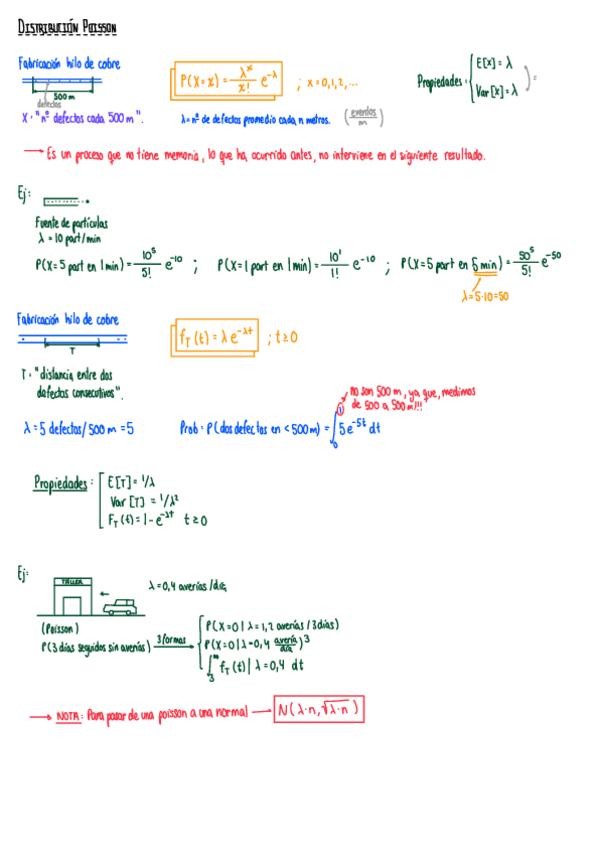 DISTRIBUCIÓN POISSON
Fabricación hilo de cobre
500 m
defectos
X = "nº defectos cada 500 m".
P(X=x) = λ^x/x! e^-λ ; x=0,1,2,...
λ = nº de defectos promedio cada n metros. (eventos/m)
Propiedades: { E[x] = λ
Var[x] = λ ) =
→ Es un proceso que no tiene memoria, lo que ha ocurrido antes, no interviene en el siguiente resultado.
Ej:
Fuente de partículas
λ = 10 part/min
P(X=5 part en 1 min) = 10^5/5! e^-10 ; P(X=1 part en 1 min) = 10^1/1! e^-10 ; P(X=5 part en 5 min) = 50^5/5! e^-50
λ=5·10=50
Fabricación hilo de cobre
T
f_T(t) = λe^-λt ; t≥0
T = "distancia entre dos
defectos consecutivos".
no son 500 m, ya que, medimos
de 500 a 500 m!!!
λ = 5 defectos/500 m = 5
Prob: P(dos defectos en < 500 m) = ∫_0^1 5e^-5t dt
Propiedades: [ E[T] = 1/λ
Var[T] = 1/λ²
F_T(t) = 1 - e^-λt t≥0
Ej:
TALLER
λ = 0,4 averías/día
(Poisson)
P(3 días seguidos sin averías) 3 formas →
P(X=0 | λ=1,2 averías/3 días)
P(X=0 | λ=0,4 avería/día)^3
∫_3^∞ f_T(t) | λ=0,4 dt
→ NOTA: Para pasar de una poisson a una normal → N(λ·n, √λ·n)